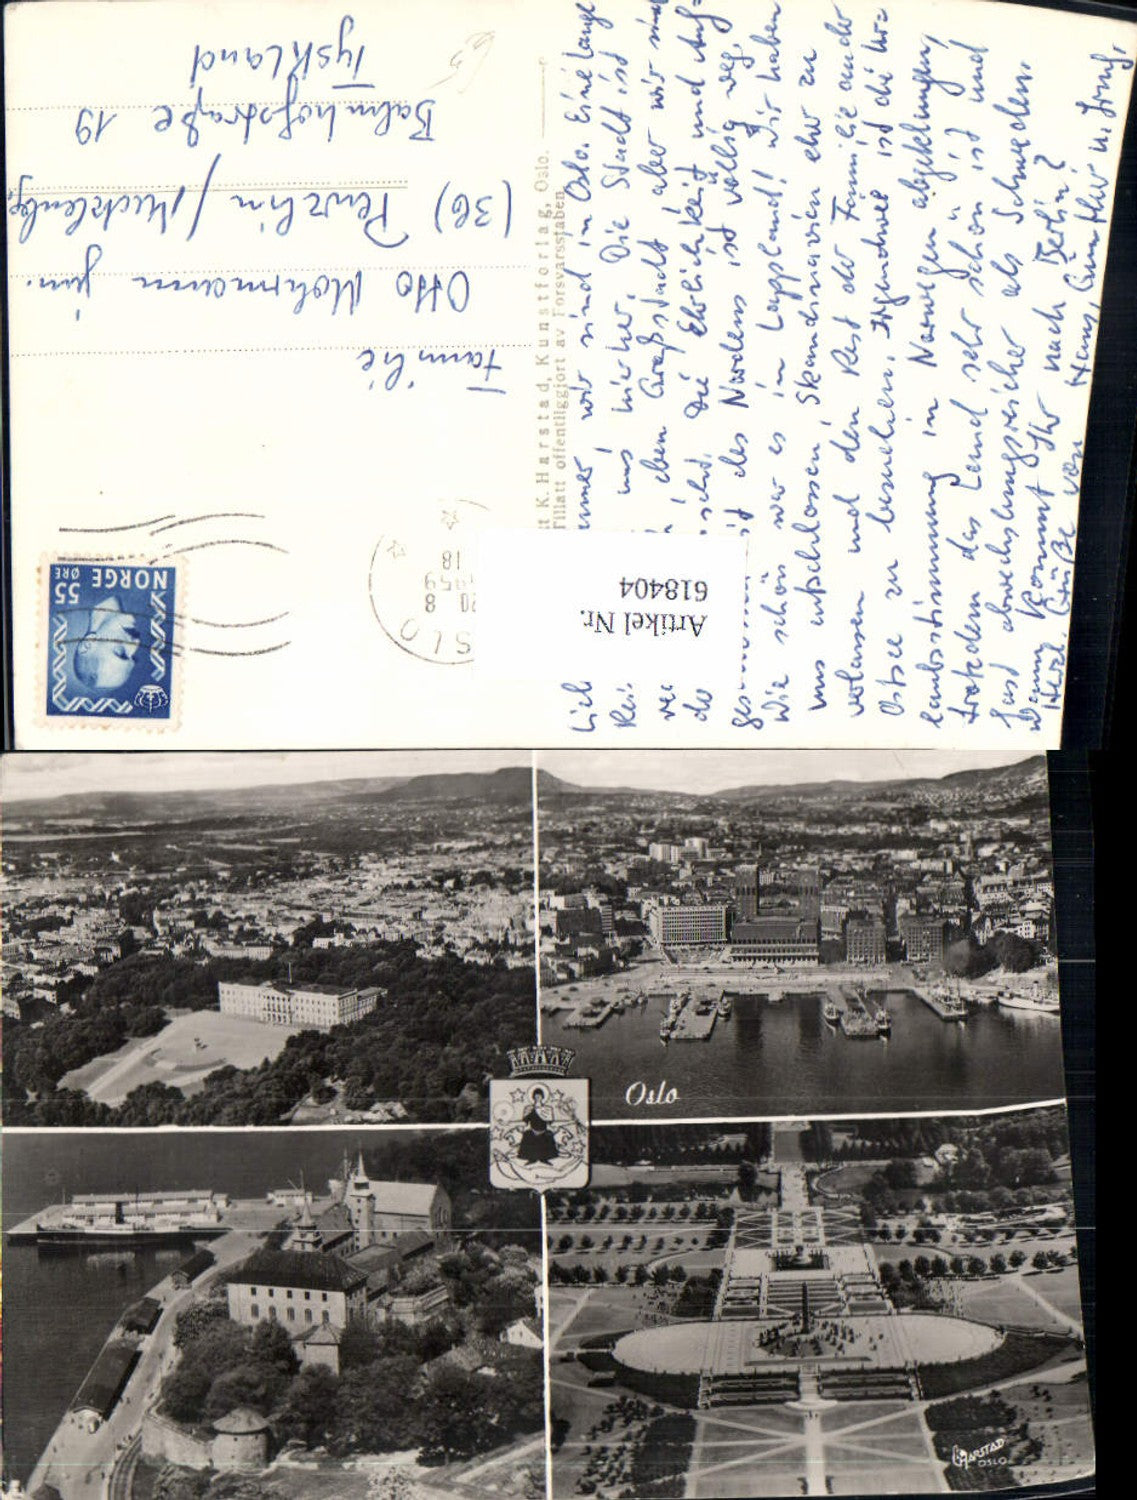 Familie
Otto Mohrmann jun.
(36) Penzlin / Mecklenbg.
Bahnhofstraße 19
Tyskland
t K. Harstad, Kunstforlag, Oslo.
Tillatt offentliggjort av Forsvarsstaben
NORGE
55
ØRE
SLO
20 8
1959
18
Artikel Nr.
618404
wir sind in Oslo. Eine lange
uns hierher. Die Stadt ist
eben Großstadt aber wir sind
Die Ehrlichkeit und Auf-
des Nordens ist völlig weg.
Wie schön war es in Lappland! Wir haben
uns entschlossen, Skandinavien eher zu
verlassen und den Rest der Familie an der
Ostsee zu besuchen. Irgendwie ist die Ur-
laubsstimmung in Norwegen abgeklungen,
trotzdem das Land sehr schön ist und
fast abwechslungsreicher als Schweden.
Wann kommt Ihr nach Berlin?
Herzl. Grüße von
Oslo
HARSTAD
OSLO